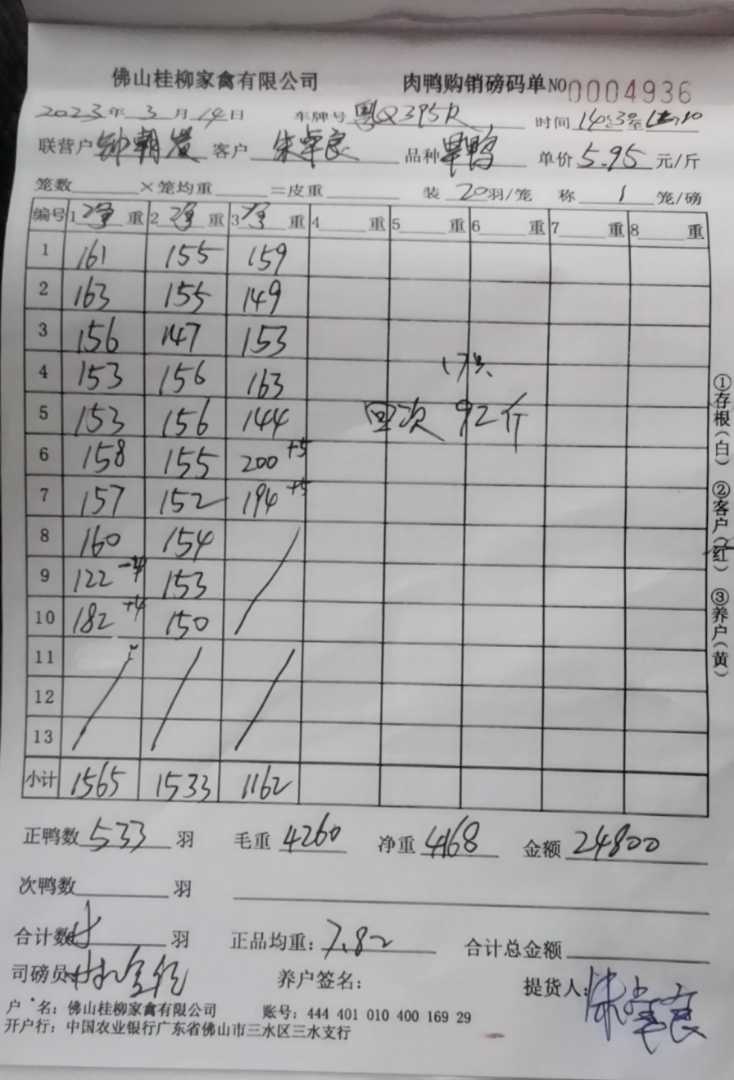 佛山桂柳家禽有限公司 肉鸭购销磅码单 NO 0004936
2023年3月14日 车牌号 粤Q395R 时间
联营户 客户 朱卓良 品种 单价 5.95 元/斤
笼数 ×笼均重 =皮重 装 20 羽/笼 称 1 笼/磅
编号 1 净 重 2 净 重 3 净 重 4 重 5 重 6 重 7 重 8 重
1 161 155 159
2 163 155 149
3 156 147 153
4 153 156 163
5 153 156 144 92斤
6 158 155 200 +5
7 157 152 194 +5
8 160 154
9 122 -4 153
10 182 +4 150
11
12
13
小计 1565 1533 1162
正鸭数 533 羽 毛重 4260 净重 4168 金额 24800
次鸭数 羽
合计数 羽 正品均重: 7.82 合计总金额
司磅员 养户签名: 提货人: 朱卓良
户 名: 佛山桂柳家禽有限公司 账号: 444 401 010 400 169 29
开户行: 中国农业银行广东省佛山市三水区三水支行
①存根(白) ②客户(红) ③养户(黄)